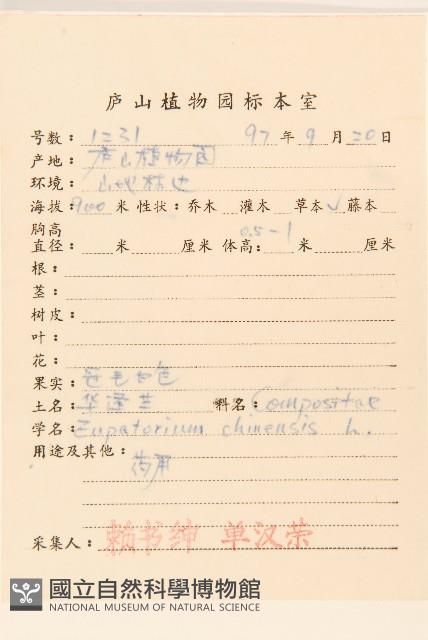 庐山植物园标本室
号数：1231 97年9月20日
产地：庐山植物园
环境：山地林边
海拔：900米 性状：乔木 灌木 草本✓藤本
胸高
直径： 米 厘米 体高：0.5-1 米 厘米
根：
茎：
树皮：
叶：
花：
果实：冠毛白色
土名：华泽兰 科名：Compositae
学名：Eupatorium chinensis L.
用途及其他：药用
采集人：赖书绅 单汉荣
國立自然科學博物館
NATIONAL MUSEUM OF NATURAL SCIENCE